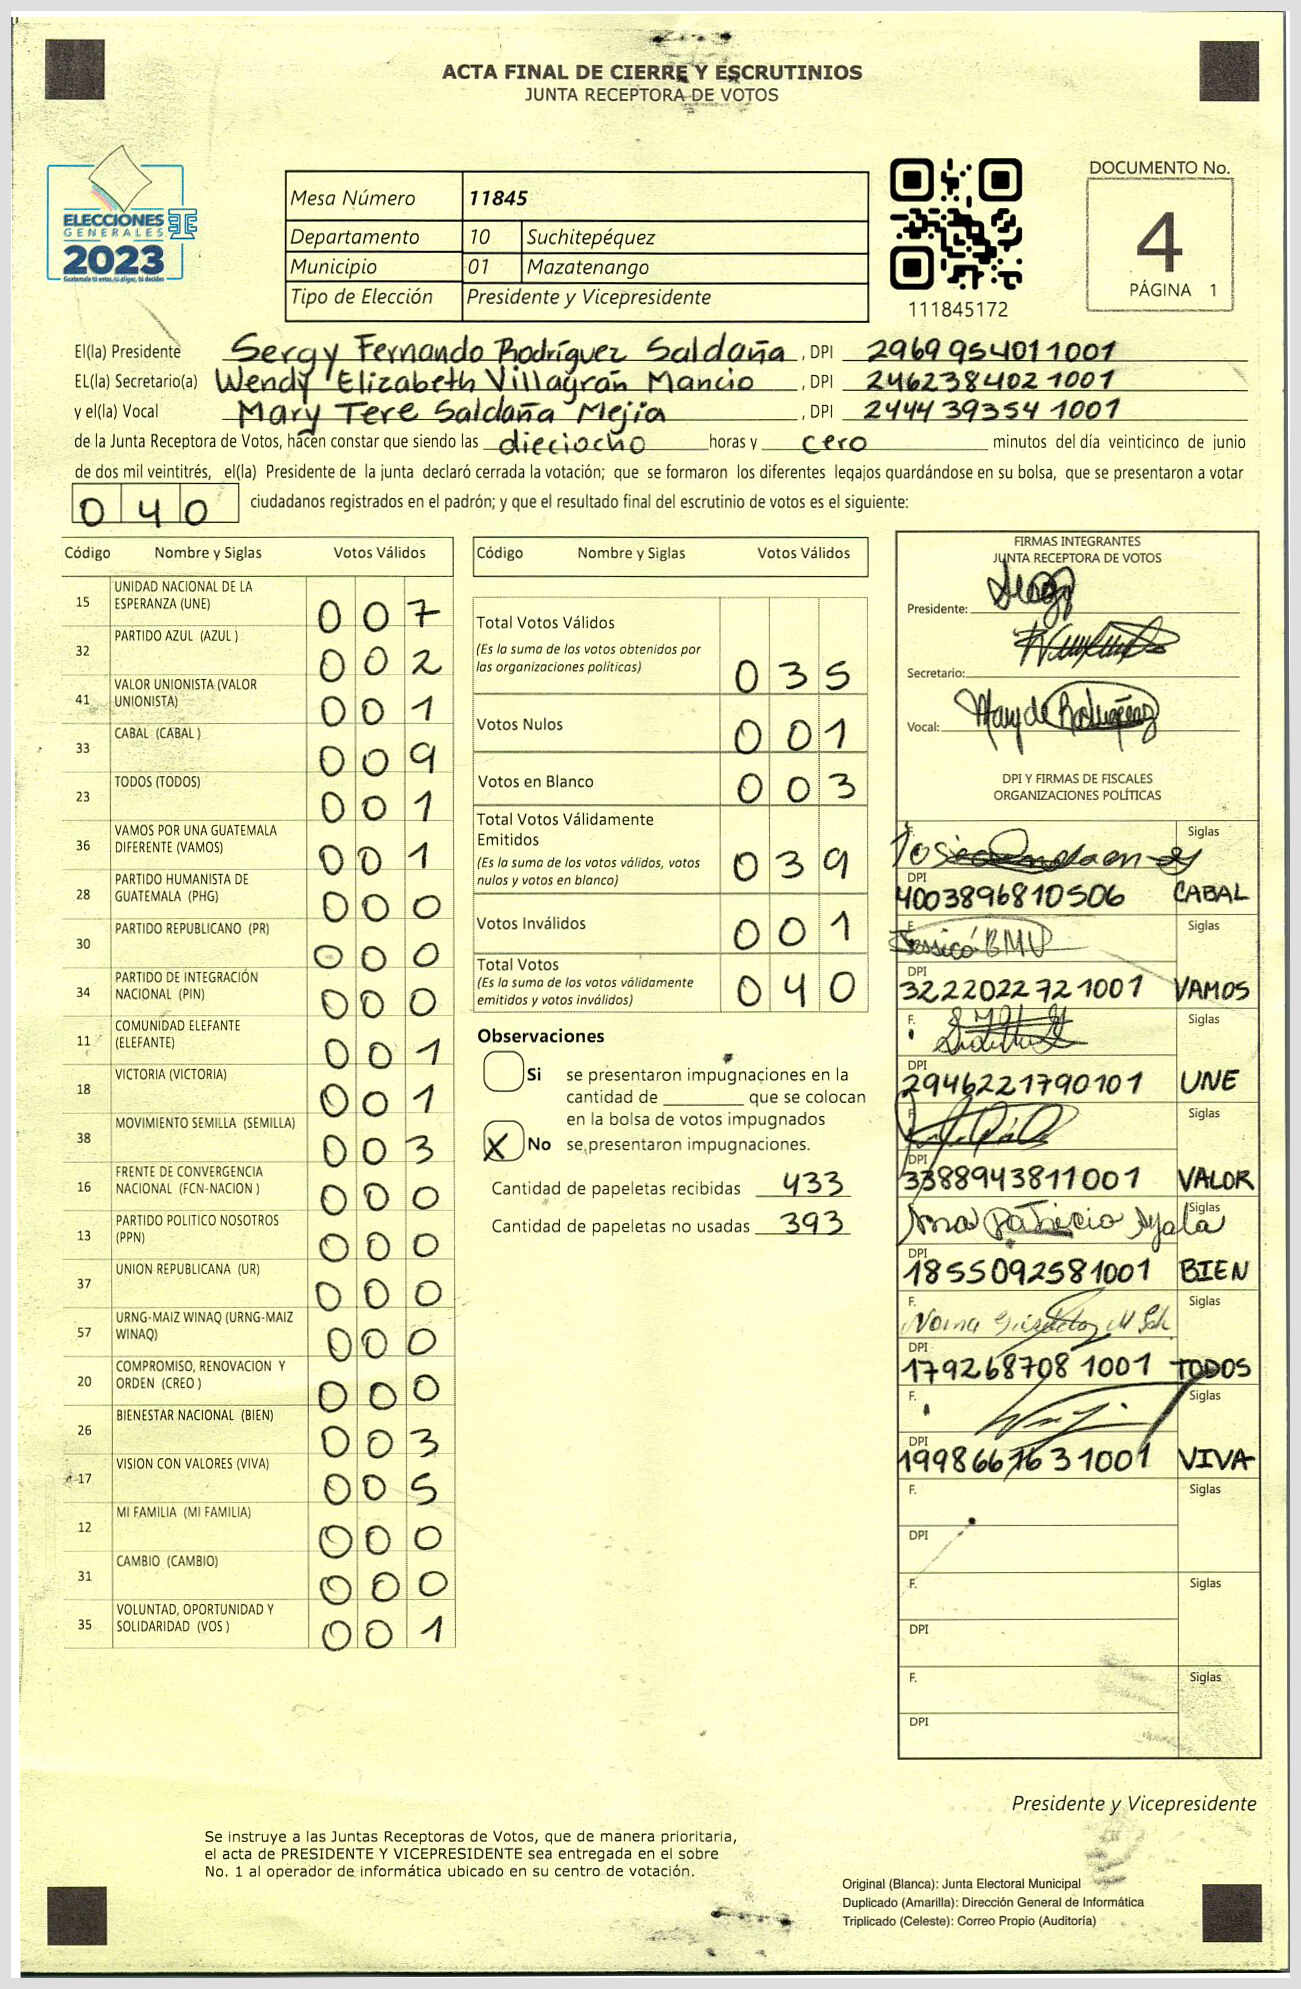 ACTA FINAL DE CIERRE Y ESCRUTINIOS
JUNTA RECEPTORA DE VOTOS
ELECCIONES
GENERALES
2023
Guatemala tú eres, tú eliges, tú decides
Mesa Número 11845
Departamento 10 Suchitepéquez
Municipio 01 Mazatenango
Tipo de Elección Presidente y Vicepresidente
111845172
DOCUMENTO No.
4
PÁGINA 1
El(la) Presidente Sergy Fernando Rodríguez Saldaña , DPI 2969954011001
EL(la) Secretario(a) Wendy Elizabeth Villagrán Mancio , DPI 2462384021001
y el(la) Vocal Mary Tere Saldaña Mejia , DPI 2444393541001
de la Junta Receptora de Votos, hacen constar que siendo las dieciocho horas y cero minutos del día veinticinco de junio
de dos mil veintitrés, el(la) Presidente de la junta declaró cerrada la votación; que se formaron los diferentes legajos guardándose en su bolsa, que se presentaron a votar
040 ciudadanos registrados en el padrón; y que el resultado final del escrutinio de votos es el siguiente:
Código Nombre y Siglas Votos Válidos
15 UNIDAD NACIONAL DE LA ESPERANZA (UNE) 007
32 PARTIDO AZUL (AZUL ) 002
41 VALOR UNIONISTA (VALOR UNIONISTA) 001
33 CABAL (CABAL ) 009
23 TODOS (TODOS) 001
36 VAMOS POR UNA GUATEMALA DIFERENTE (VAMOS) 001
28 PARTIDO HUMANISTA DE GUATEMALA (PHG) 000
30 PARTIDO REPUBLICANO (PR) 000
34 PARTIDO DE INTEGRACIÓN NACIONAL (PIN) 000
11 COMUNIDAD ELEFANTE (ELEFANTE) 001
18 VICTORIA (VICTORIA) 001
38 MOVIMIENTO SEMILLA (SEMILLA) 003
16 FRENTE DE CONVERGENCIA NACIONAL (FCN-NACION ) 000
13 PARTIDO POLITICO NOSOTROS (PPN) 000
37 UNION REPUBLICANA (UR) 000
57 URNG-MAIZ WINAQ (URNG-MAIZ WINAQ) 000
20 COMPROMISO, RENOVACION Y ORDEN (CREO ) 000
26 BIENESTAR NACIONAL (BIEN) 003
17 VISION CON VALORES (VIVA) 005
12 MI FAMILIA (MI FAMILIA) 000
31 CAMBIO (CAMBIO) 000
35 VOLUNTAD, OPORTUNIDAD Y SOLIDARIDAD (VOS ) 001
Código Nombre y Siglas Votos Válidos
Total Votos Válidos
(Es la suma de los votos obtenidos por
las organizaciones políticas) 035
Votos Nulos 001
Votos en Blanco 003
Total Votos Válidamente
Emitidos
(Es la suma de los votos válidos, votos
nulos y votos en blanco) 039
Votos Inválidos 001
Total Votos
(Es la suma de los votos válidamente
emitidos y votos inválidos) 040
Observaciones
Si se presentaron impugnaciones en la
cantidad de ________ que se colocan
en la bolsa de votos impugnados
X No se presentaron impugnaciones.
Cantidad de papeletas recibidas 433
Cantidad de papeletas no usadas 393
FIRMAS INTEGRANTES
JUNTA RECEPTORA DE VOTOS
Presidente:
Secretario:
Vocal:
DPI Y FIRMAS DE FISCALES
ORGANIZACIONES POLÍTICAS
F. Siglas
DPI
4003896810506 CABAL
F. Siglas
DPI
3222022721001 VAMOS
F. Siglas
DPI
2946221790101 UNE
F. Siglas
DPI
3388943811001 VALOR
Siglas
Ana Patricia Ayala
DPI
1855092581001 BIEN
F. Siglas
DPI
1792687081001 TODOS
F. Siglas
DPI
1998667631001 VIVA
F. Siglas
DPI
F. Siglas
DPI
F. Siglas
DPI
Presidente y Vicepresidente
Se instruye a las Juntas Receptoras de Votos, que de manera prioritaria,
el acta de PRESIDENTE Y VICEPRESIDENTE sea entregada en el sobre
No. 1 al operador de informática ubicado en su centro de votación.
Original (Blanca): Junta Electoral Municipal
Duplicado (Amarilla): Dirección General de Informática
Triplicado (Celeste): Correo Propio (Auditoría)